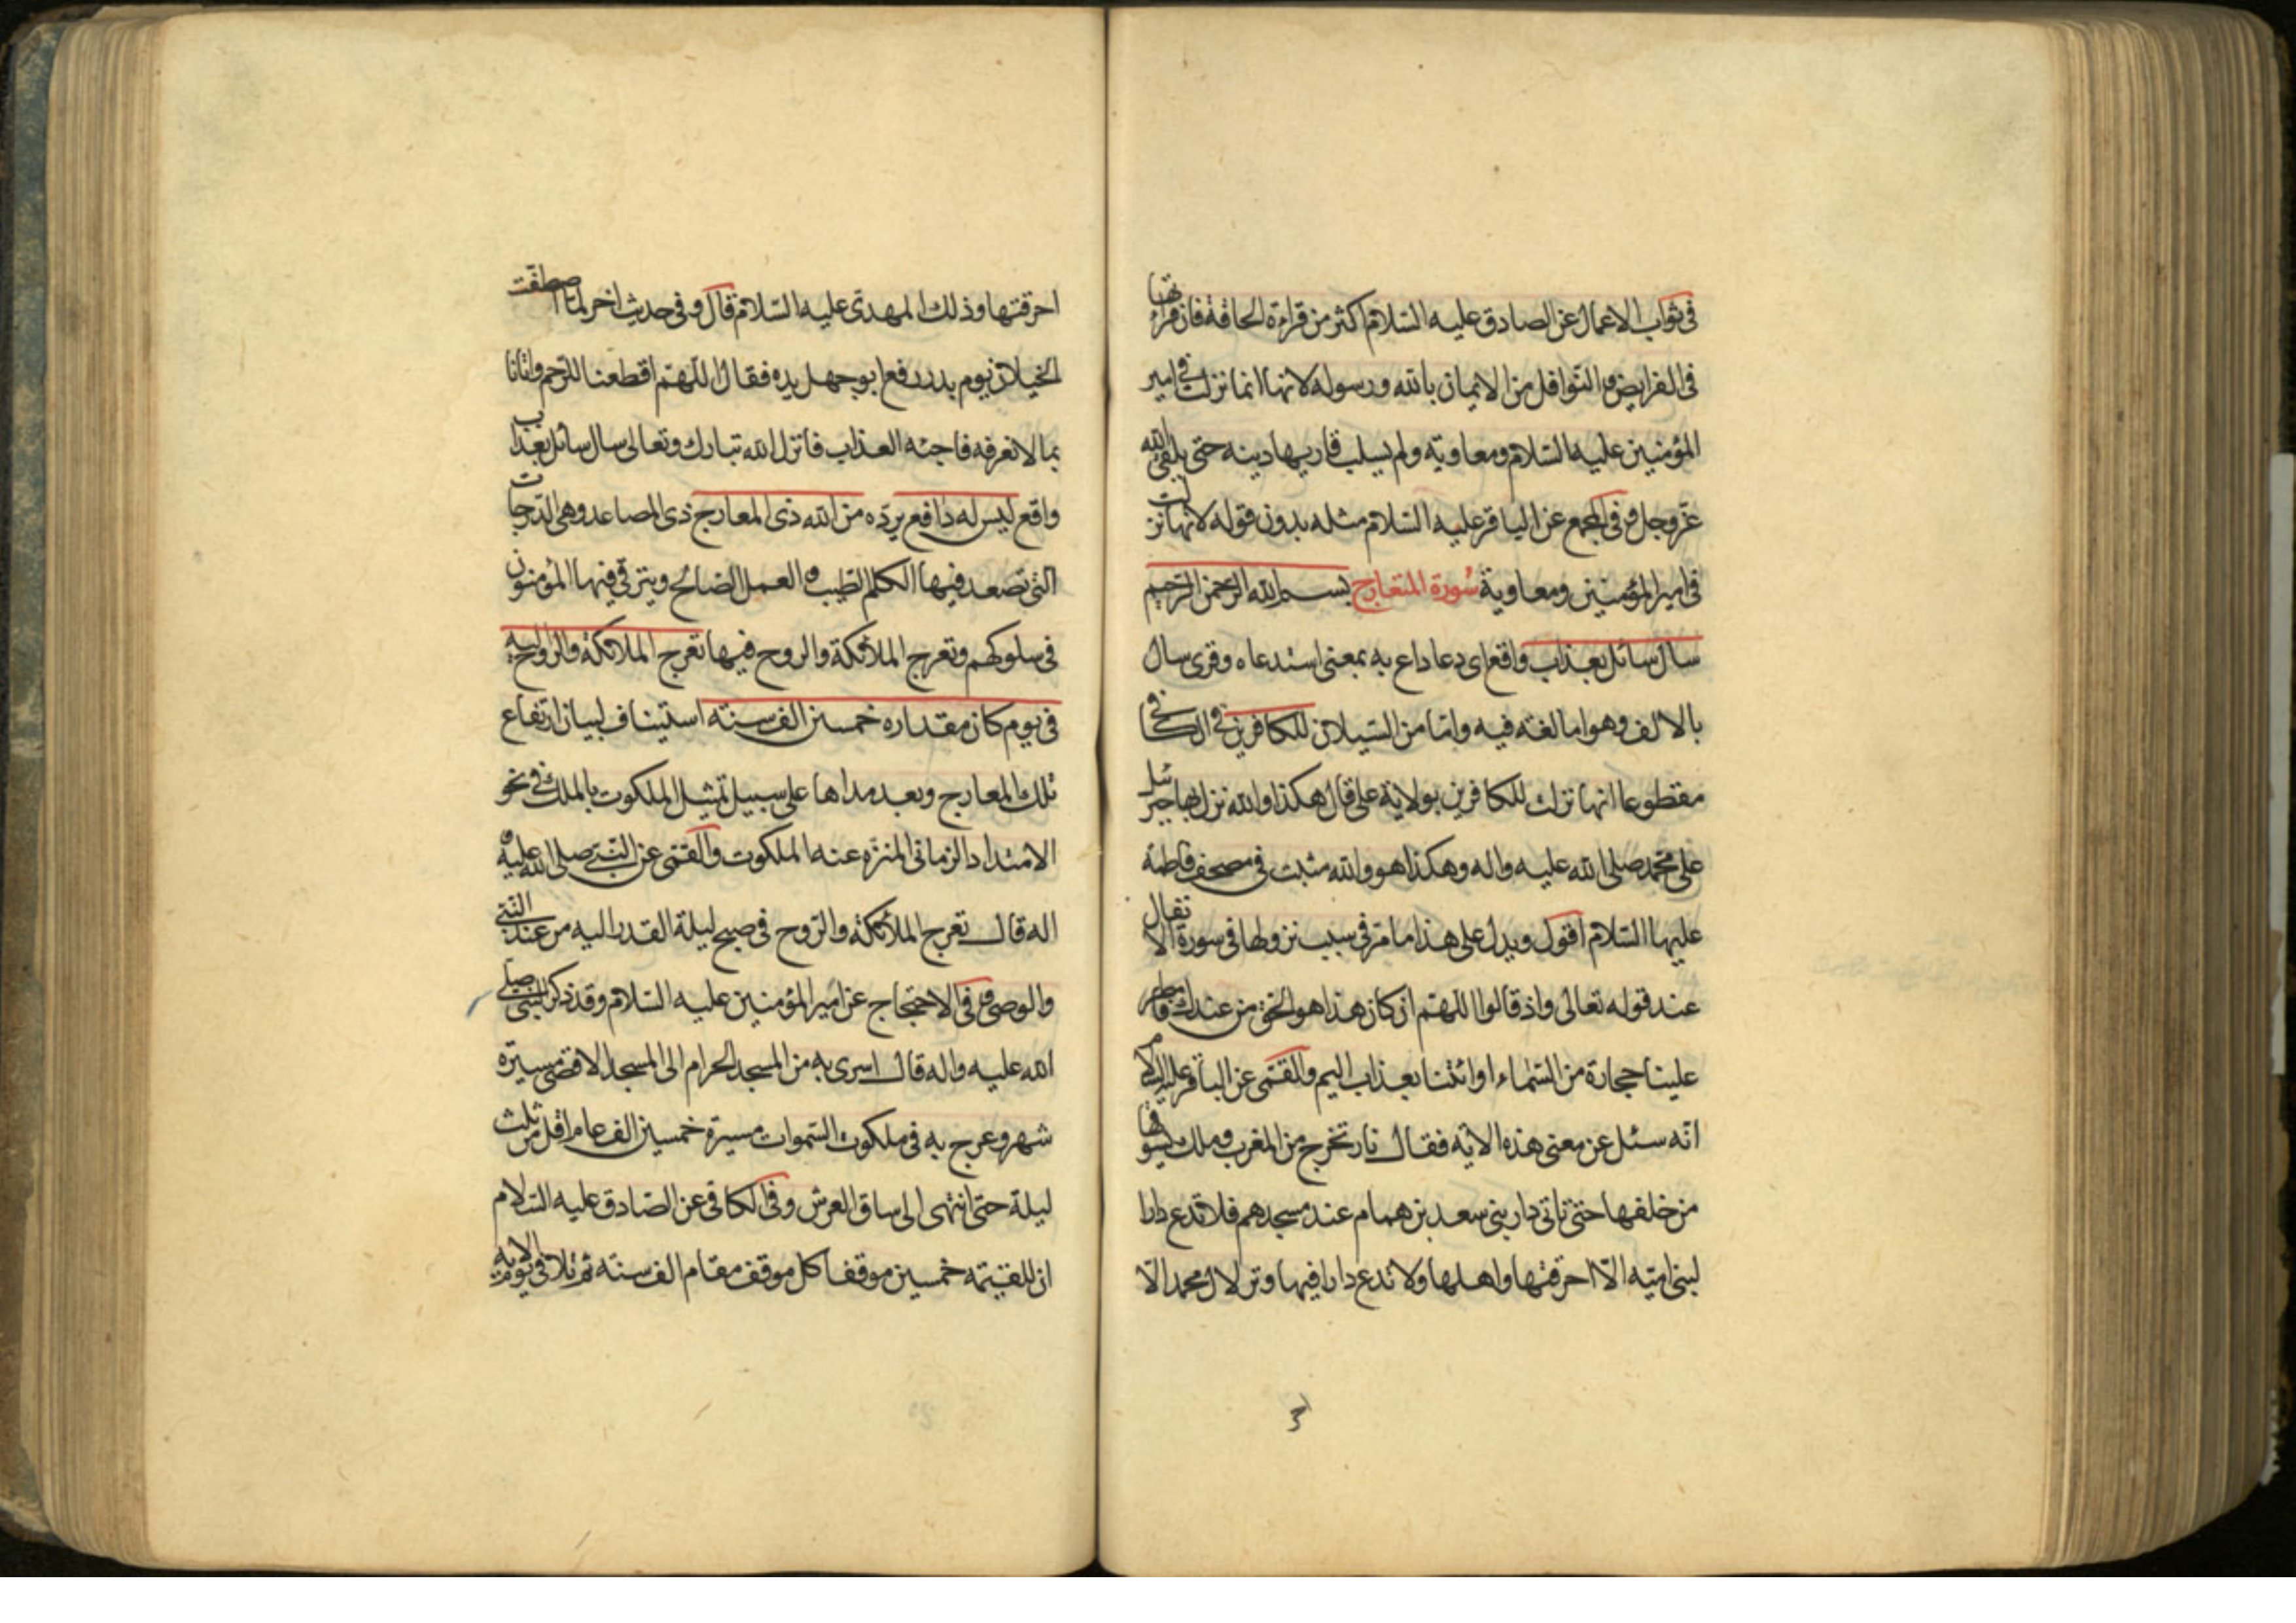 في ثواب الاعمال عن الصادق عليه السّلام اكثر من قراءة الحاقة فان قراءتها
في الفرايض و النّوافل من الايمان بالله ورسوله لانها انما نزلت في امير
المؤمنين عليه السّلام ومعاوية ولم يسلب قاريها دينه حتى يلقى الله
عزّ وجل وفي المجمع عن الباقر عليه السّلام مثله بدون قوله لانها نزلت
في امير المؤمنين ومعاوية سُورة المَعارج بسم الله الرّحمن الرّحيم
سال سائل بعذاب واقع اى دعا داع به بمعنى استدعاه وقرى سال
بالالف وهو اما لغه فيه وامّا من السّيلان للكافرين في الكافي
مقطوعا انها نزلت للكافرين بولاية على قال هكذا والله نزل بها جبرئيل
على محمّد صلى الله عليه واله وهكذا هو والله مثبت في مصحف فاطمة
عليها السّلام اقول ويدل على هذا ما مرّ في سبب نزولها في سورة الانفال
عند قوله تعالى واذ قالوا اللّهمّ ان كان هذا هو الحقّ من عندك فامطر
علينا حجارة من السّماء او ائتنا بعذاب اليم والقمّى عن الباقر عليه السلام
انّه سئل عن معنى هذه الاية فقال نار تخرج من المغرب وملك يسوقها
من خلفها حتى تاتى دار بنى سعد بن همام عند مسجدهم فلا تدع دارا
لبنى اميّه الّا احرقتها واهلها ولا تدع دارا فيها وتر لال محمد الّا
احرقتها وذلك المهدىّ عليه السّلام قال وفي حديث اخر لمّا اصطفّت
الخيلان يوم بدر رفع ابو جهل يده فقال اللّهمّ اقطعنا للرّحم واتانا
بما لا نعرفه فاجئه العذاب فانزل الله تبارك وتعالى سال سائل بعذاب
واقع ليس له دافع يردّه من الله ذى المعارج ذى المصاعد وهى الدّرجات
التى تصعد فيها الكلم الطّيب و العمل الصّالح ويترقّى فيها المؤمنون
في سلوكهم وتعرج الملائكة والروح فيها تعرج الملائكة والرّوح اليه
في يوم كان مقداره خمسين الف سنته استيناف لبيان ارتفاع
تلك المعارج وبعد مداها على سبيل تمثيل الملكوت بالملك في نحو
الامتداد الزمانى المنزّه عنه الملكوت والقمّى عن النّبىّ صلى الله عليه و
اله قال تعرج الملائكة والرّوح في صبح ليلة القدر اليه من عند النّبىّ
والوصى وفي الاحتجاج عن امير المؤمنين عليه السّلام وقد ذكر النبىّ صلى
الله عليه واله قال اسرى به من المسجد الحرام الى المسجد الاقصى مسيرة
شهر وعرج به في ملكوت السّموات مسيرة خمسين الف عام اقل من ثلث
ليلة حتى انتهى الى ساق العرش وفي الكافى عن الصّادق عليه السّلام
ان للقيمة خمسين موقفا كل موقف مقام الف سنته ثم تلا في يوم الاية